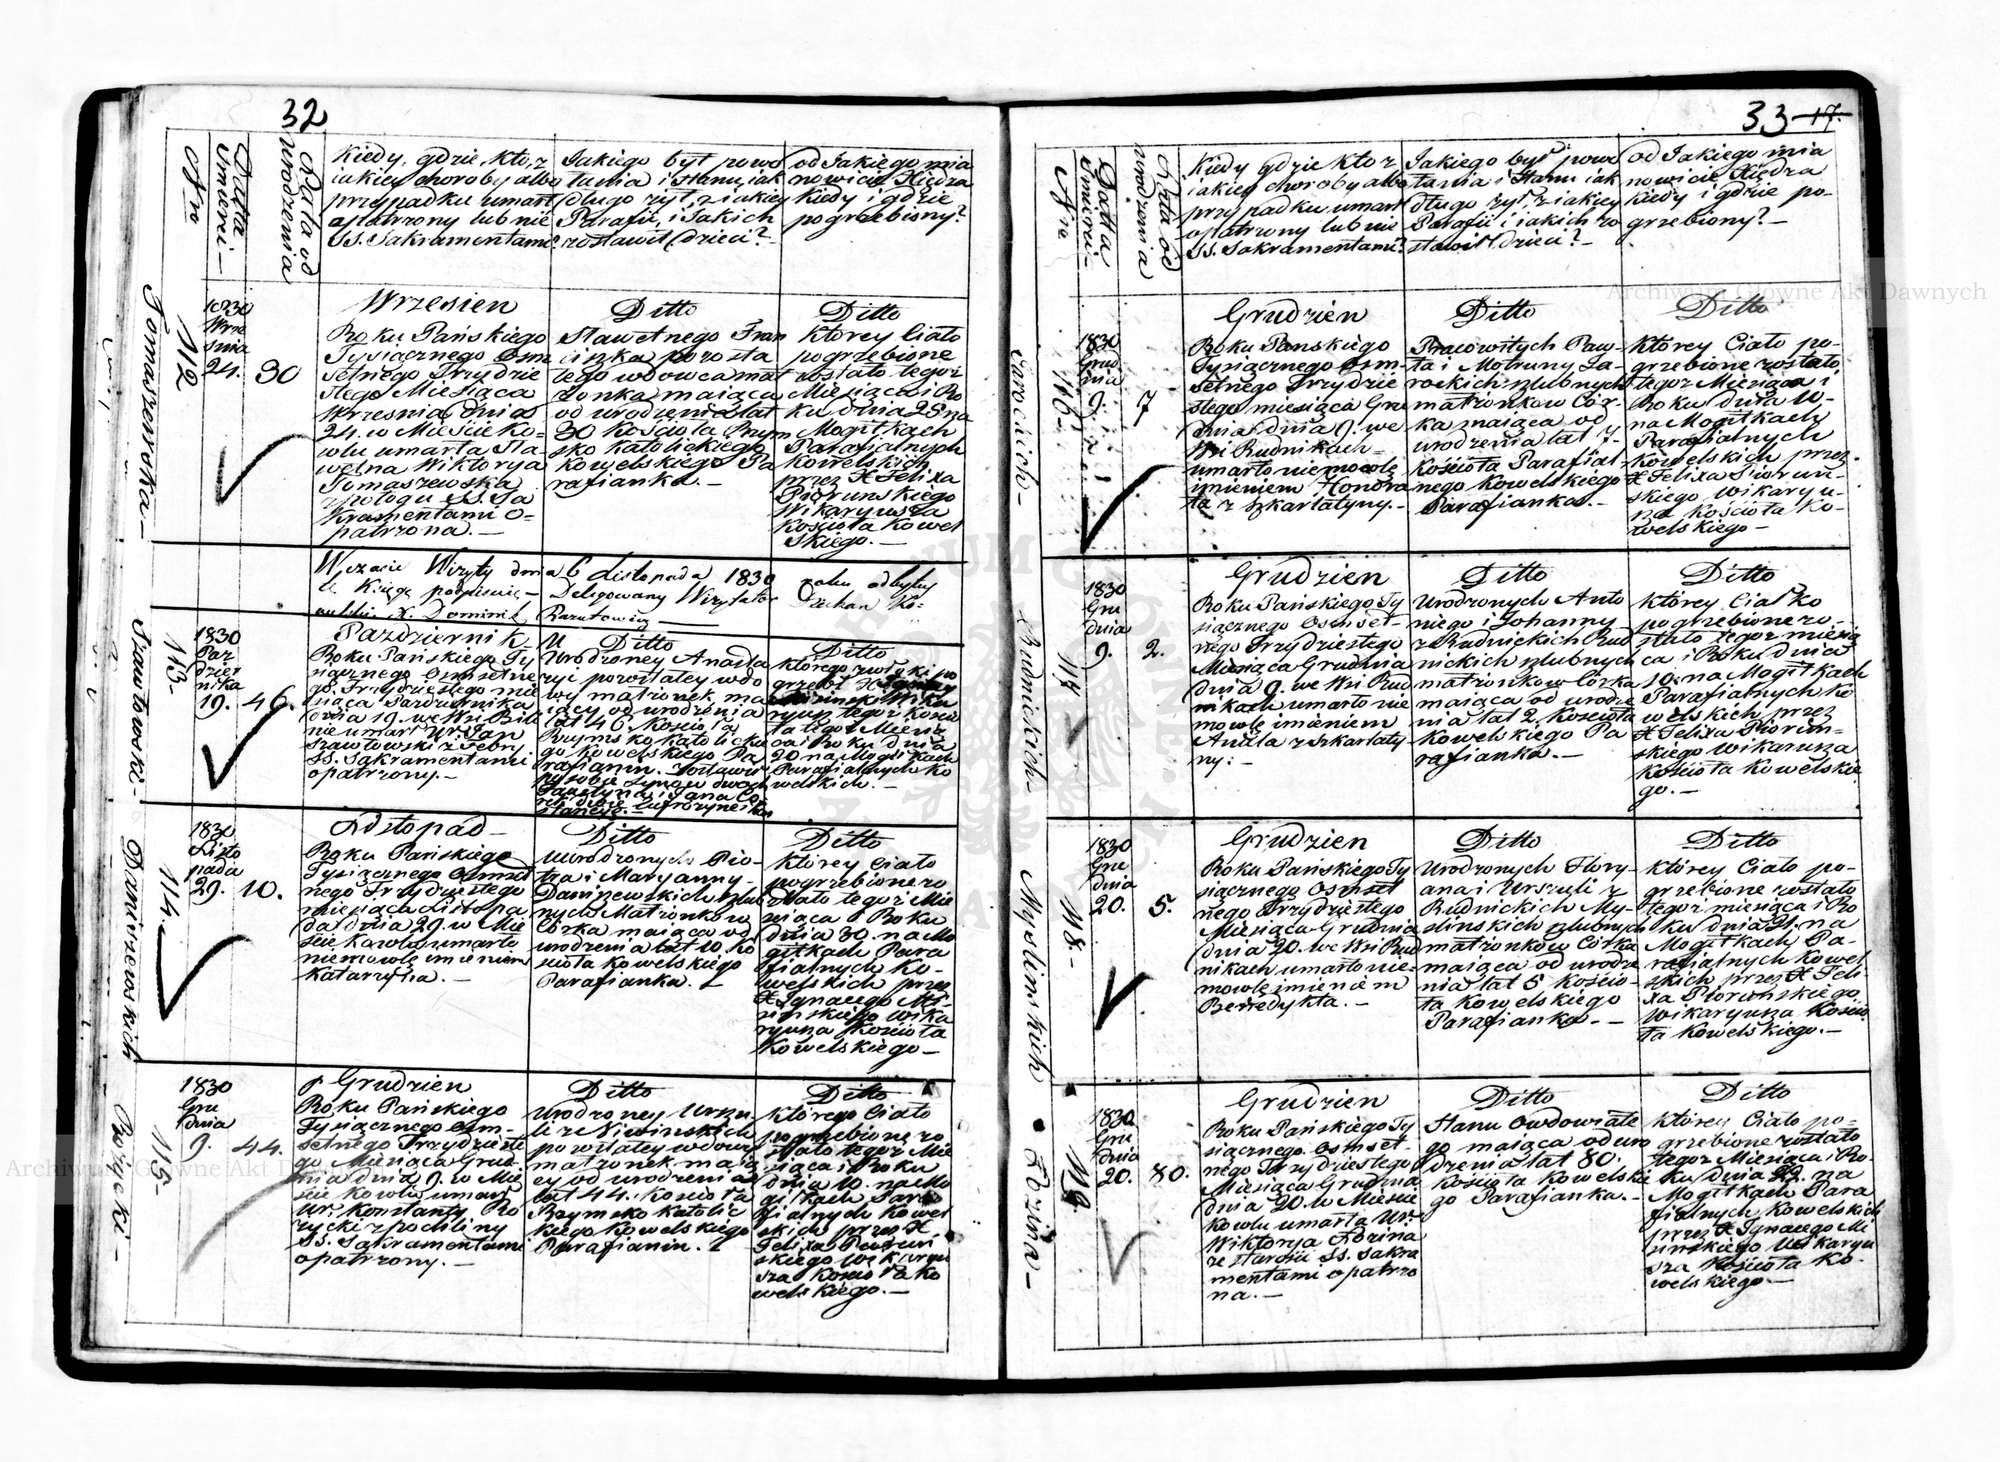 32
Nro
Datta
Umerci.—
Lata od
urodzenia
Kiedy, gdzie, kto, z
iakiey choroby albo
przypadku umarł
opatrzony lub nie
SS. Sakramentami?
Jakiego był powo
łania i Stanu, iak
długo żył, z iakiey
Parafii, i Jakich
zostawił Dzieci?—
od Jakiego mia
nowicie Xiędza
kiedy i gdzie
pogrzebiony?
Tomaszewska.—
112
1830
Wrze
śnia
24.
30
Wrzesien
Roku Pańskiego
Tysiącznego Osm
Setnego Trzydzie
stego Miesiąca
Wrzesnia dnia
24. w Mieście Ko-
wlu umarła Sła-
wetna Wiktorya
Tomaszewska
z połogu SS. Sa
kramentami o-
patrzona.—
Ditto
Sławetnego Fran
ciszka pozosta
łego wdowca mał
żonka maiąca
od urodzenia lat
30 Kościoła Rzym
sko Katolickiego
Kowelskiego Pa
rafianka.—
Ditto
Ktorey Ciało
pogrzebione
zostało tegoż
Miesiąca i Ro
ku dnia 25 na
Mogiłkach
Parafialnych
Kowelskich
przez X Felixa
Piorunskiego
Wikaryusza
Kościoła Kowel
skiego.—
W czasie Wizyty dnia 6 Listopada 1830 roku odbytey
tę Księgę podpisuię— Delegowany Wizytator Dziekan Ko-
welski X. Dominik
Szawłowski.—
113.
1830
Paz
dzier
nika
19.
46.
Pazdziernik
Roku Pańskiego Ty
siącznego Osmsetne
go Trzydziestego mie
siąca Pazdziernika
dnia 19. we Wsi Bili
nie umarł Ur. Jan
Szawłowski z Febry
SS. Sakramentami
opatrzony.—
Ditto
Urodzoney Anasta
zyi pozostałey wdo
wy małżonek ma
iący od urodzenia
lat 46. Kościoła
Rzymsko Katolickie
go Kowelskiego Pa
rafianin. Zostawił
po sobie Synow dwoch
Ditto
ktorego zwłoki po
grzebł X Ignacy
Misinski Wika
ryusz tegoż Kościo
ła tegoż Miesią
ca i Roku dnia
20 na Mogiłkach
Parafialnych Ko
welskich.—
Daniszewskich
114.—
1830
Listo
pada
29.
10.
Listopad—
Roku Pańskiego
Tysiącznego Osmset
nego Trzydziestego
miesiąca Listopa
da dnia 29. w Mie
ście Kowlu umarło
niemowlę imieniem
Katarzyna.—
Ditto
Urodzonych Pio-
tra i Maryanny—
Daniszewskich szlub
nych Małżonkow
Córka maiąca od
urodzenia lat 10. Ko
ścioła Kowelskiego
Parafianka.
Ditto
Ktorey Ciało
pogrzebione zo
stało tegoż Mie
siąca i Roku
dnia 30. na Mo
giłkach Para
fialnych Ko-
welskich przez
X Ignacego Mi-
sinskiego Wika
ryusza Kościoła
Kowelskiego—
Rożycki—
115.—
1830
Gru
dnia
9.
44.
Grudzien
Roku Pańskiego
Tysiącznego Osm-
setnego Trzydzieste
go Miesiąca Gru
dnia dnia 9. w Mie
ście Kowlu umarł
Ur. Konstanty Ro
życki z pochliny
SS. Sakramentami
opatrzony.—
Ditto
Urodzoney Urszu
li z Niesinskich
pozostałey wdowy
małżonek maią
cy od urodzenia
lat 44. Kościoła
Rzymsko Katolic
kiego Kowelskiego
Parafianin.
Ditto
ktorego Ciało
pogrzebione zo
stało tegoż Mie
siąca i Roku
dnia 10. na Mo
giłkach Para
fialnych Kowel
skich przez X
Felixa Piorun
skiego Wikaryu
sza Kościoła Ko
welskiego.—
33 17.
Nro
Datta
Umerci.—
Lata od
urodzenia
Kiedy gdzie kto z
iakiey choroby albo
przypadku umarł
opatrzony lub nie
SS. Sakramentami?
Jakiego był powo
łania i Stanu iak
długo żył, z iakiey
Parafii i iakich zo
stawił Dzieci?—
od Jakiego mia
nowicie Xiędza
kiedy i gdzie po-
grzebiony?—
116.
1830
Grud
nia
9.
7
Grudzien
Roku Panskiego
Tysiącznego Osm-
setnego Trzydzie
stego miesiąca Gru
dnia dnia 9. we
Wsi Rudnikach—
umarło niemowlę
imieniem Honora
ta z szkarlatyny.—
Ditto
Pracowitych Paw-
ła i Motruny Za-
rockich szlubnych
małżonkow Cór-
ka maiąca od
urodzenia lat 7.
Kościoła Parafial-
nego Kowelskiego
Parafianka.—
Ditto
Ktorey Ciało po-
grzebione zostało
tegoż Miesiąca i
Roku dnia 10-
na Mogiłkach
Parafialnych
Kowelskich przez
X Felixa Piorun-
skiego Wikaryu-
sza Kościoła Ko-
welskiego—
Rudnickich
117
1830
Gru
dnia
9.
2.
Grudzien
Roku Pańskiego Ty
siącznego Osmset-
nego Trzydziestego
Miesiąca Grudnia
dnia 9. we Wsi Rud
nikach umarło nie
mowlę imieniem
Aniela z Szkarlaty
ny.—
Ditto
Urodzonych Anto
niego i Johanny
z Rudnickich Rud
nickich szlubnych
małżonkow Córka
maiąca od urodze
nia lat 2. Kościoła
Kowelskiego Pa
rafianka.—
Ditto
Ktorey Ciałko
pogrzebione zo-
stało tegoż miesią
ca i Roku dnia
10. na Mogiłkach
Parafialnych Ko
welskich przez
X Felixa Piorun-
skiego Wikaryusza
Kościoła Kowelskie
go.—
Myslinskich
118.—
1830
Gru
dnia
20.
5.
Grudzien
Roku Pańskiego Ty
siącznego Osmset
nego Trzydziestego
Miesiąca Grudnia
dnia 20. we Wsi Rud
nikach umarło nie-
mowlę imieniem
Benedykta.—
Ditto
Urodzonych Flory-
ana i Urszuli z
Rudnickich My-
slinskich szlubnych
małżonków Córka
maiąca od urodze
nia lat 5 Kościo-
ła Kowelskiego
Parafianka.—
Ditto
Ktorey Ciało po-
grzebione zostało
tegoż miesiąca i Ro
ku dnia 21. na
Mogiłkach Pa-
rafialnych Kowel
skich przez X Feli-
xa Piorunskiego
Wikaryusza Kościo
ła Kowelskiego.—
Fozina—
119
1830
Gru
dnia
20.
80.
Grudzien
Roku Pańskiego Ty
siącznego Osmset-
nego Trzydziestego
Miesiąca Grudnia
dnia 20. w Miescie
Kowlu umarła Ur.
Wiktorya Fozina
ze starości SS. Sakra
mentami opatrzo
na.—
Ditto
Stanu Owdowiałe
go maiąca od uro
dzenia lat 80.
Kościoła Kowelskie
go Parafianka.—
Ditto
Ktorey Ciało po-
grzebione zostało
tegoż Miesiąca i Ro-
ku dnia 22. na
Mogiłkach Para
fialnych Kowelskich
przez X Ignacego Mi
sinskiego Wikaryu
sza Kościoła Ko-
welskiego.—
Archiwum Główne Akt Dawnych
Archiwum Główne Akt Dawnych